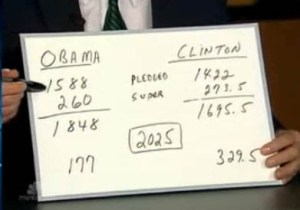 OBAMA CLINTON
1588 PLEDGED 1422
260 SUPER 273.5
1848 1695.5
2025
177 329.5